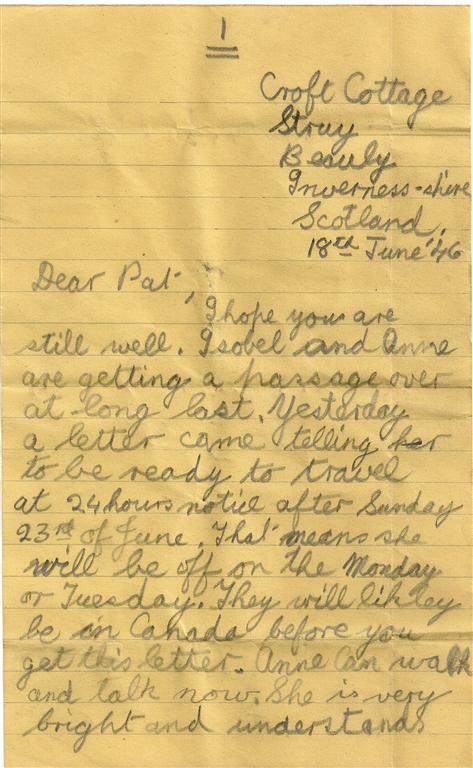 1
Croft Cottage
Struy
Beauly
Inverness-shire
Scotland.
18th June '46
Dear Pat,
I hope you are
still well. Isobel and Anne
are getting a passage over
at long last. Yesterday
a letter came telling her
to be ready to travel
at 24 hours notice after Sunday
23rd of June. That means she
will be off on the Monday
or Tuesday. They will likley
be in Canada before you
get this letter. Anne can walk
and talk now. She is very
bright and understands